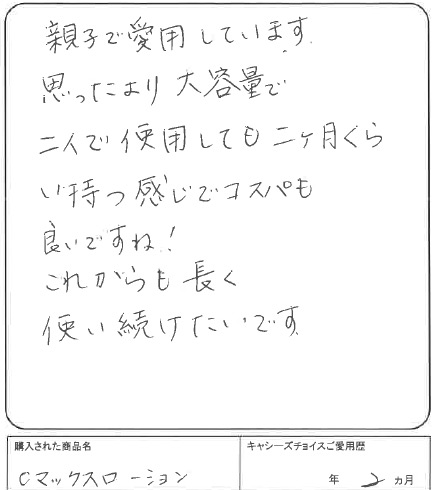 親子で愛用しています.
思ったより大容量で
二人で使用しても二ヶ月くら
い持つ感じでコスパも
良いですね!
これからも長く
使い続けたいです
購入された商品名
キャシーズチョイスご愛用歴
Cマックスローション
年 2 カ月